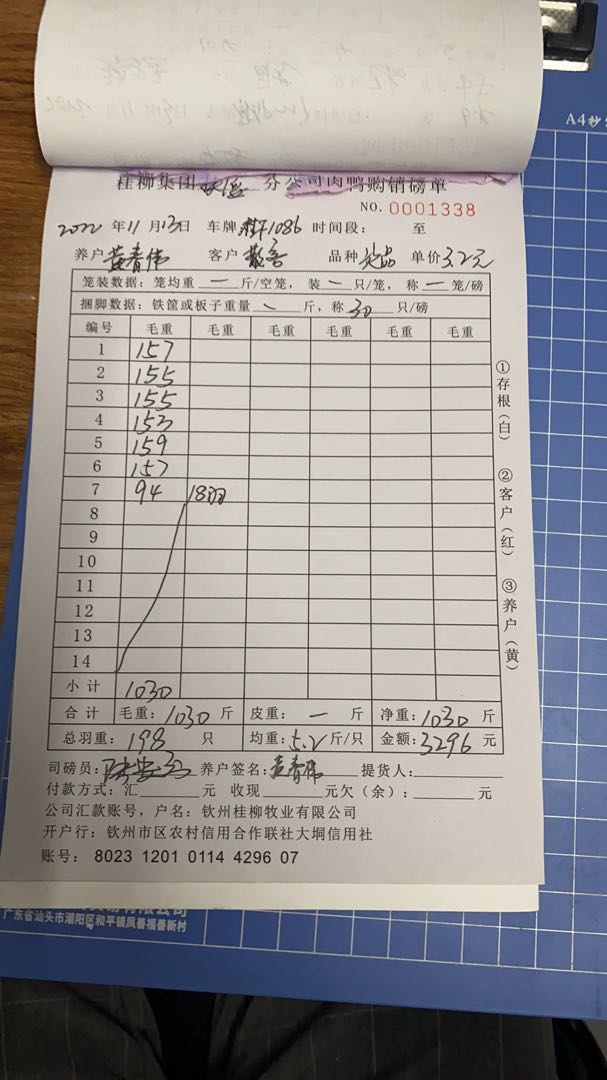 A4秒
桂柳集团 分公司肉鸭购销磅单
NO. 0001338
2022 年 11 月 13 日 车牌 1086 时间段： 至
养户 黄春伟 客户 散客 品种 单价 3.2元
笼装数据：笼均重 一 斤/空笼，装 一 只/笼，称 一 笼/磅
捆脚数据：铁筐或板子重量 斤，称 30 只/磅
编号 毛重 毛重 毛重 毛重 毛重 毛重
1 157
2 155
3 155
4 153
5 159
6 157
7 94 18羽
8
9
10
11
12
13
14
小计 1030
合计 毛重：1030 斤 皮重：一 斤 净重：1030 斤
总羽重：198 只 均重：5.2 斤/只 金额：3296 元
①存根（白）
②客户（红）
③养户（黄）
司磅员： 养户签名：黄春伟 提货人：
付款方式：汇 元 收现 元欠（余）： 元
公司汇款账号，户名：钦州桂柳牧业有限公司
开户行：钦州市区农村信用合作联社大垌信用社
账号： 8023 1201 0114 4296 07
有限公司
广东省汕头市潮阳区和平镇凤善福善新村